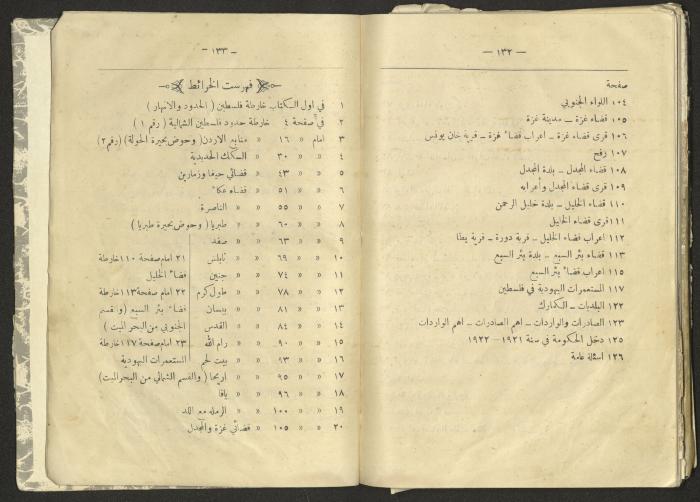 — ١٣٢ —
صفحة
١٠٤ اللواء الجنوبي
١٠٥ قضاء غزة — مدينة غزة
١٠٦ قرى قضاء غزة — اعراب قضاء غزة — قرية خان يونس
١٠٧ رفح
١٠٨ قضاء المجدل — بلدة المجدل
١٠٩ قرى قضاء المجدل وأعرابه
١١٠ قضاء الخليل — بلدة خليل الرحمن
١١١ قرى قضاء الخليل
١١٢ اعراب قضاء الخليل — قرية دورة — قرية يطا
١١٣ قضاء بئر السبع — بلدة بئر السبع
١١٥ اعراب قضاء بئر السبع
١١٧ المستعمرات اليهودية في فلسطين
١٢٢ البلديات — الكمارك
١٢٣ الصادرات والواردات — اهم الصادرات — اهم الواردات
١٢٥ دخل الحكومة في سنة ١٩٢١ — ١٩٢٢
١٢٦ اسئلة عامة
— ١٣٣ —
فهرست الخرائط
١ في اول الكتاب خارطة فلسطين ( الحدود والانهار )
٢ في صفحة ٤ خارطة حدود فلسطين الشمالية ( رقم ١ )
٣ امام « ١٦ « منابع الاردن ( وحوض بحيرة الحولة ) ( رقم ٢ )
٤ « « ٣٠ « السكك الحديدية
٥ « « ٤٣ « قضائي حيفا وزمارين
٦ « « ٥١ « قضاء عكاء
٧ « « ٥٥ « « الناصرة
٨ « « ٦٠ « « طبريا ( وحوض بحيرة طبريا )
٩ « « ٦٣ « « صفد
١٠ « « ٦٩ « « نابلس
١١ « « ٧٤ « « جنين
١٢ « « ٧٨ « « طول كرم
١٣ « « ٨١ « « بيسان
١٤ « « ٨٤ « « القدس
١٥ « « ٩٠ « « رام الله
١٦ « « ٩٣ « « بيت لحم
١٧ « « ٩٥ « « اريحا ( والقسم الشمالي من البحر الميت )
١٨ « « ٩٦ « « يافا
١٩ « « ١٠٠ « « الرمله مع اللد
٢٠ « « ١٠٥ « قضائي غزة والمجدل
٢١ امام صفحة ١١٠ خارطة
قضاء الخليل
٢٢ امام صفحة ١١٣ خارطة
قضاء بئر السبع ( والقسم
الجنوبي من البحر الميت )
٢٣ امام صفحة ١١٧ خارطة
المستعمرات اليهودية